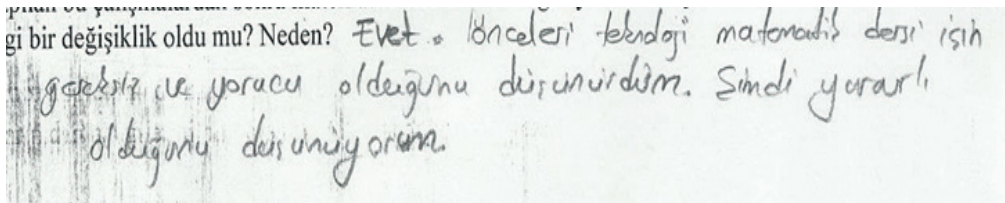 gi bir değişiklik oldu mu? Neden? Evet. önceleri teknoloji matematik dersi için
gereksiz ve yorucu olduğunu düşünürdüm. Şimdi yararlı
olduğunu düşünüyorum.